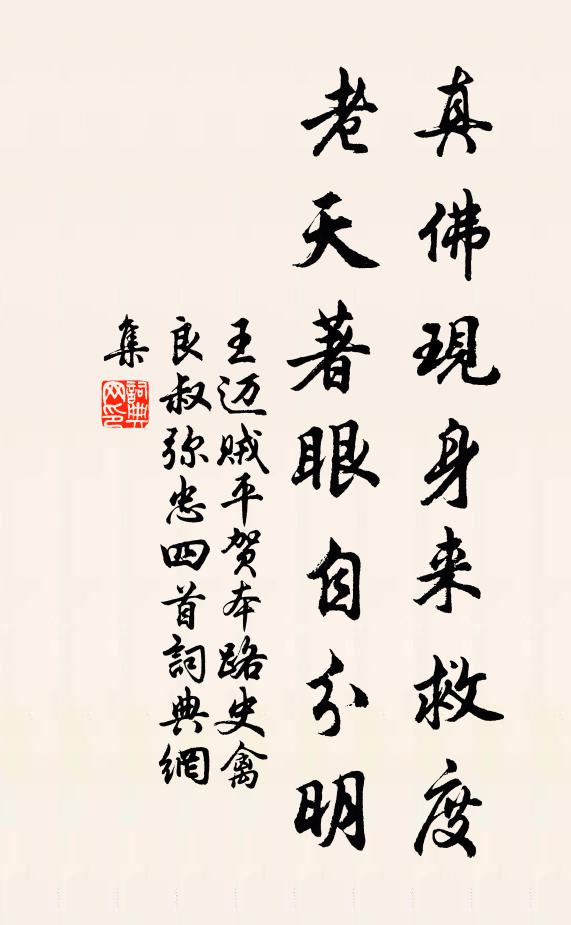 真佛現身来救度
老天著眼自分明
王迈贼平贺本路史禽
良叔弥忠四首詞典網
集
詞典网印